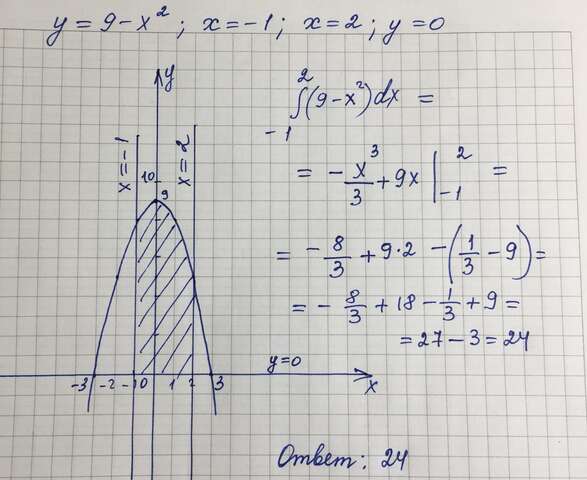 y = 9 - x²; x = -1; x = 2; y = 0
y
x = -1
x = 2
10
9
y = 0
-3 -2 -1 0 1 2 3
x
2
∫(9 - x²)dx =
-1
= - x³/3 + 9x |²₋₁ =
= - 8/3 + 9·2 - (1/3 - 9) =
= - 8/3 + 18 - 1/3 + 9 =
= 27 - 3 = 24
Ответ: 24